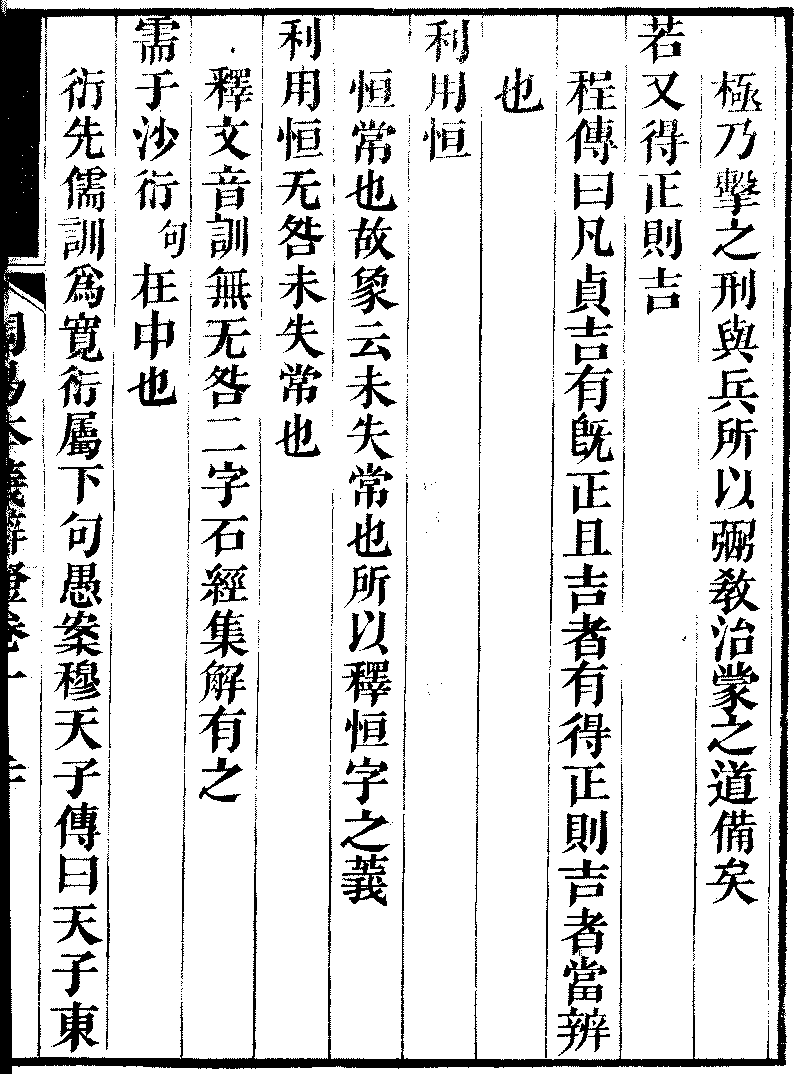 極乃擊之刑與兵所以弼敎治蒙之道備矣
若又得正則吉
程傳曰凡貞吉有旣正且吉者有得正則吉者當辨
也
利用恒
恒常也故象云未失常也所以釋恒字之義
利用恒无咎未失常也
釋文音訓無无咎二字石經集解有之
需于沙衍句在中也
衍先儒訓爲寬衍屬下句愚案穆天子傳曰天子東